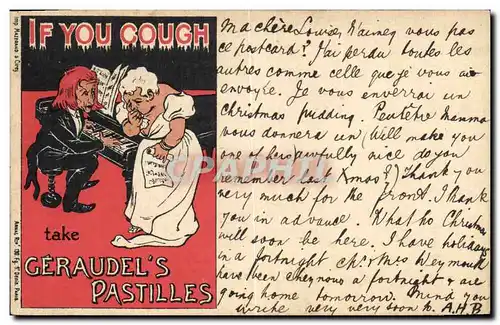 IF YOU COUGH
take
GÉRAUDEL'S
PASTILLES
CPAPHIL.COM
Ma chère Louise, N'aimez vous pas
ce postcard? J'ai perdu toutes les
autres comme celle que je vous ai
envoyée. Je vous enverrai un
Christmas pudding. Peutêtre Mamma
vous donnera un. Will make you
one of hers awfully nice do you
remember last Xmas?) Thank you
very much for the front. I thank
you in advance. What ho Christmas
will soon be here. I have holidays
in a fortnight Ch. & Mrs Weymouth
have been chez nous a fortnight & are
going home tomorrow. Mind you
write very very soon to A.H.B